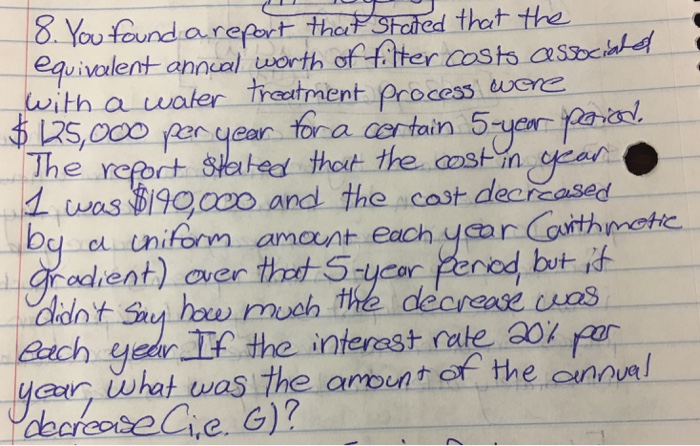 8. You found a report that stated that the
equivalent annual worth of filter costs associated
with a water treatment process were
$125,000 per year for a certain 5-year period.
The report stated that the cost in year
1 was $190,000 and the cost decreased
by a uniform amount each year (arithmetic
gradient) over that 5-year period, but it
didn't say how much the decrease was
each year. If the interest rate 20% per
year, what was the amount of the annual
decrease (i.e. G)?